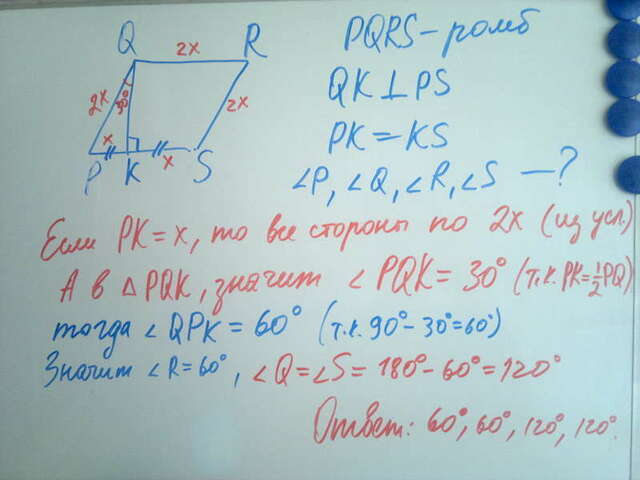 Q 2x R
2x 30° 2x
x x
P K S
PQRS – ромб
QK ⊥ PS
PK = KS
∠P, ∠Q, ∠R, ∠S — ?
Если PK = x, то все стороны по 2x (из усл.)
А в △PQK, значит ∠PQK = 30° (т.к. PK = 1/2 PQ)
тогда ∠QPK = 60° (т.к. 90° - 30° = 60°)
Значит ∠R = 60°, ∠Q = ∠S = 180° - 60° = 120°
Ответ: 60°, 60°, 120°, 120°.